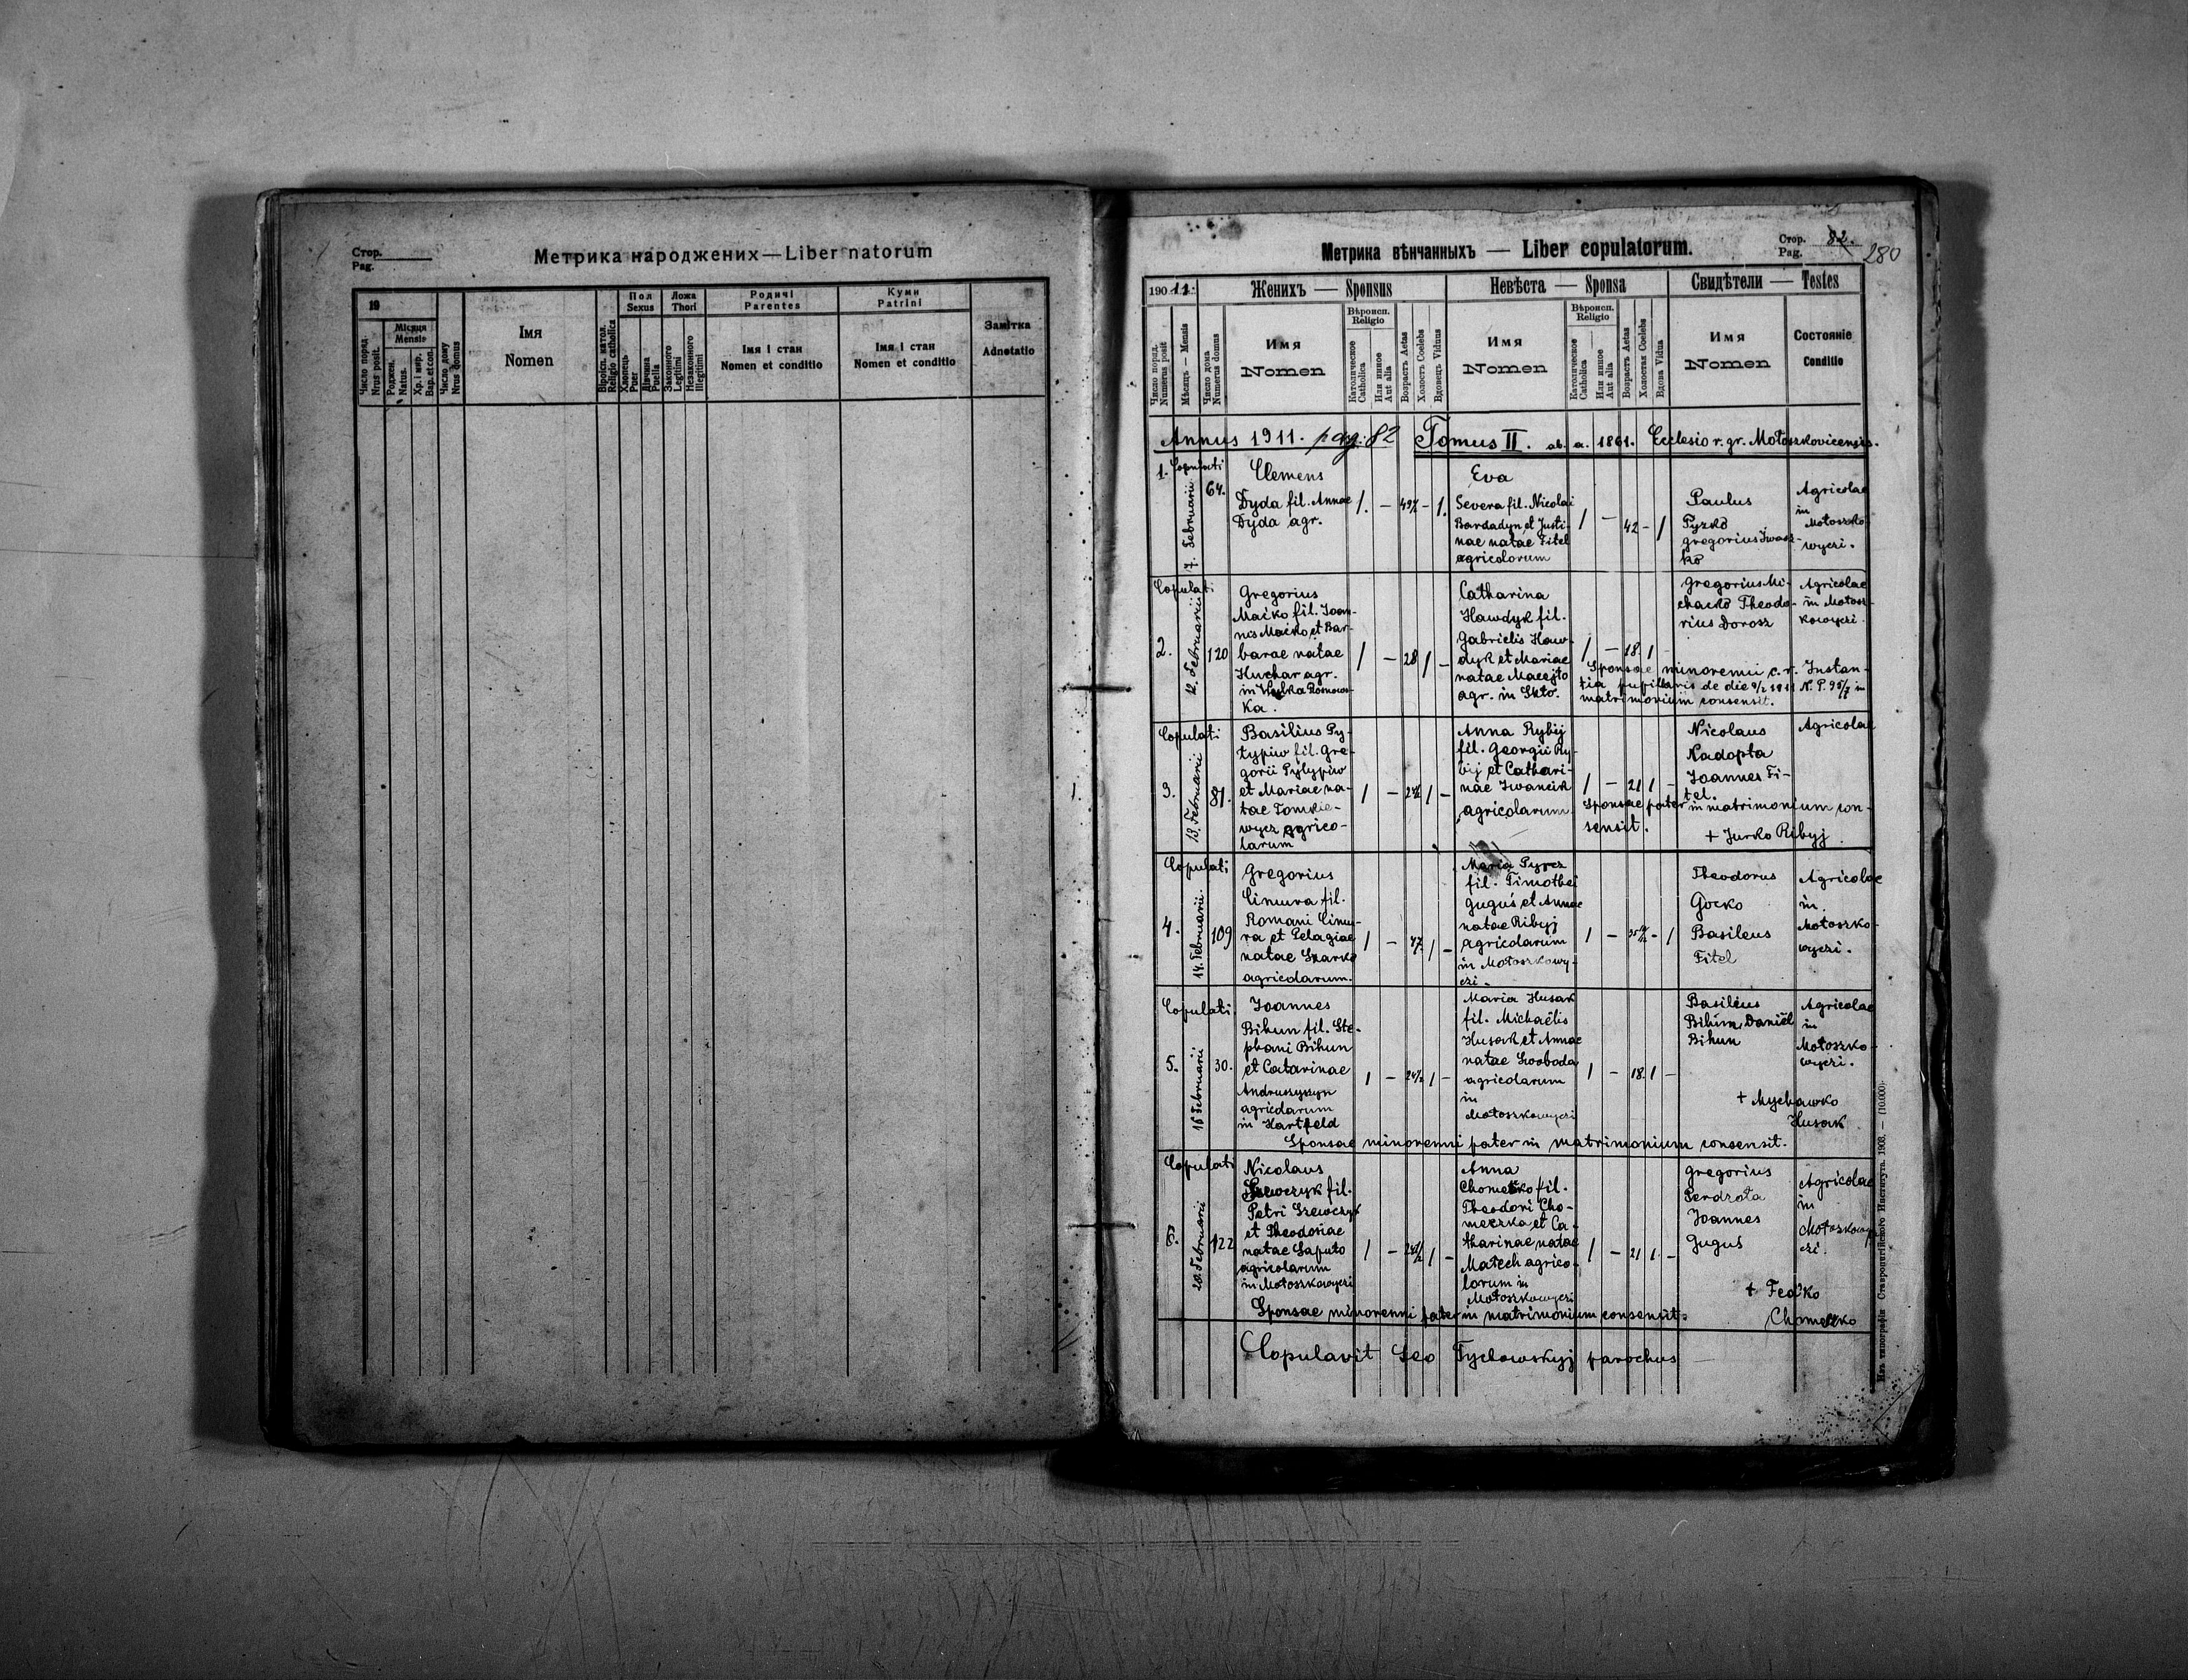 Стор.
Pag.
Метрика народжених — Liber natorum
19
Число поряд.
Nrus posit.
Місяця
Mensis
Роджен.
Natus.
Хр. і мир.
Bap. et con.
Число дому
Nrus domus
Імя
Nomen
Віроісп. катол.
Religio catholica
Пол
Sexus
Хлопець
Puer
Дівчина
Puella
Ложа
Thori
Законного
Legitimi
Незаконного
Illegitimi
Родичі
Parentes
Імя і стан
Nomen et conditio
Куми
Patrini
Імя і стан
Nomen et conditio
Замітка
Adnotatio
Метрика вѣнчанныхъ — Liber copulatorum.
Стор.
Pag.
82.
280
190 11.
Женихъ — Sponsus
Невѣста — Sponsa
Свидѣтели — Testes
Число поряд.
Numerus posit
Мѣсяць — Mensis
Число дома
Numerus domus
Имя
Nomen
Вѣроисп.
Religio
Католическое
Catholica
Или инное
Aut alia
Возрастъ Aetas
Холостъ Coelebs
Вдовецъ Viduus
Имя
Nomen
Вѣроисп.
Religio
Католическое
Catholica
Или инное
Aut alia
Возрастъ Aetas
Холостая Coelebs
Вдова Vidua
Имя
Nomen
Состояніе
Conditio
Annus 1911. pag: 82 Tomus II. ab. a. 1861. Ecclesio r. gr. Mołoszkovicensis.
1.
Copulati
7. Februarii
64.
Clemens
Dyda fil. Annae
Dyda agr.
1. —
— 1.
Eva
Severa fil. Nicolai
Bardadyn et Justi-
nae natae Fitel
agricolorum
1 — 42 — 1
Paulus
Pyzko
Gregorius Iwasz-
ko
Agricolae
in
Mołoszko-
wyczi.
Copulati
2.
12. Februarii
120
Gregorius
Maćko fil. Joan-
nes Maćko et Bar-
barae natae
Huchar agr.
in
ka.
1 — 28 1 —
Catharina
Hawdyk fil.
Gabrielis Haw-
dyk et Mariae
natae Macejto
agr. in
1 — 18 1 —
Gregorius Mi-
chacko Theodo-
rius Dorosz
Agricolae
in Mołosz-
kowyczi.
Sponsae minorenni c. r. Instan-
tia pupillaris de die 9/2 1911 N. P. 95/ in
matrimonium consensit.
Copulati
3.
13. Februarii
81.
Basilius Py-
łypiw fil. Gre-
gorii Pyłypiw
et Mariae na-
tae Tomkie-
wycz agrico-
larum
1 — 1 —
Anna Rybij
fil. Georgii Ry-
bij et Cathari-
nae Iwancik
agricolarum
1 — 21 1 —
Nicolaus
Kadopta
Joannes Fi-
tel.
Agricolae
Sponsae pater in matrimonium con-
sensit.
+ Jurko Ribyj.
Copulati
4.
14. Februarii.
109
Gregorius
Cimura fil.
Romani Cimu-
ra et Pelagiae
natae Szarko
agricolarum.
1 — 47. 1 —
Maria Pyrcz
fil. Timothei
Guguś et Annae
natae Ribyj
agricolarum
in Mołoszkowy-
czi.
1 — — 1
Theodorus
Gocko
Basileus
Fitel
Agricolae
in
Mołoszko-
wyczi.
Copulati.
5.
16 Februarii
30.
Joannes
Bihun fil. Ste-
phani Bihun
et Catarinae
Andruszyszyn
agricolarum
in Hartfeld
1 — 1 —
Maria Husak
fil. Michaëlis
Husak et Annae
natae Swoboda
agricolarum
in
Mołoszkowyczi
1 — 18. 1 —
Basilius
Bihun, Daniël
Bihun
Agricolae
in
Mołoszko-
wyczi.
+ Mychawko
Husak
Sponsae minorenni pater in matrimonium consensit.
Copulati
6.
20. Februarii
122
Nicolaus
Szewczyk fil.
Petri Szewczyk
et Theodosiae
natae Saputo
agricolarum
in Mołoszkowyczi
1 — 1 —
Anna
Chomeczko fil.
Theodori Cho-
meczka, et Ca-
tharinae natae
Matech agrico-
larum in
Mołoszkowyczi
1 — 21 1. —
Gregorius
Perdzota
Joannes
Guguś
Agricolae
in
Mołoszkowy-
czi.
+ Fedko
Chomeczko
Sponsae minorenni pater in matrimonium consensit.
Copulavit Leo Tyclowskyj parochus
Изъ типографіи Ставропигійского Института. 1908. — (10.000).